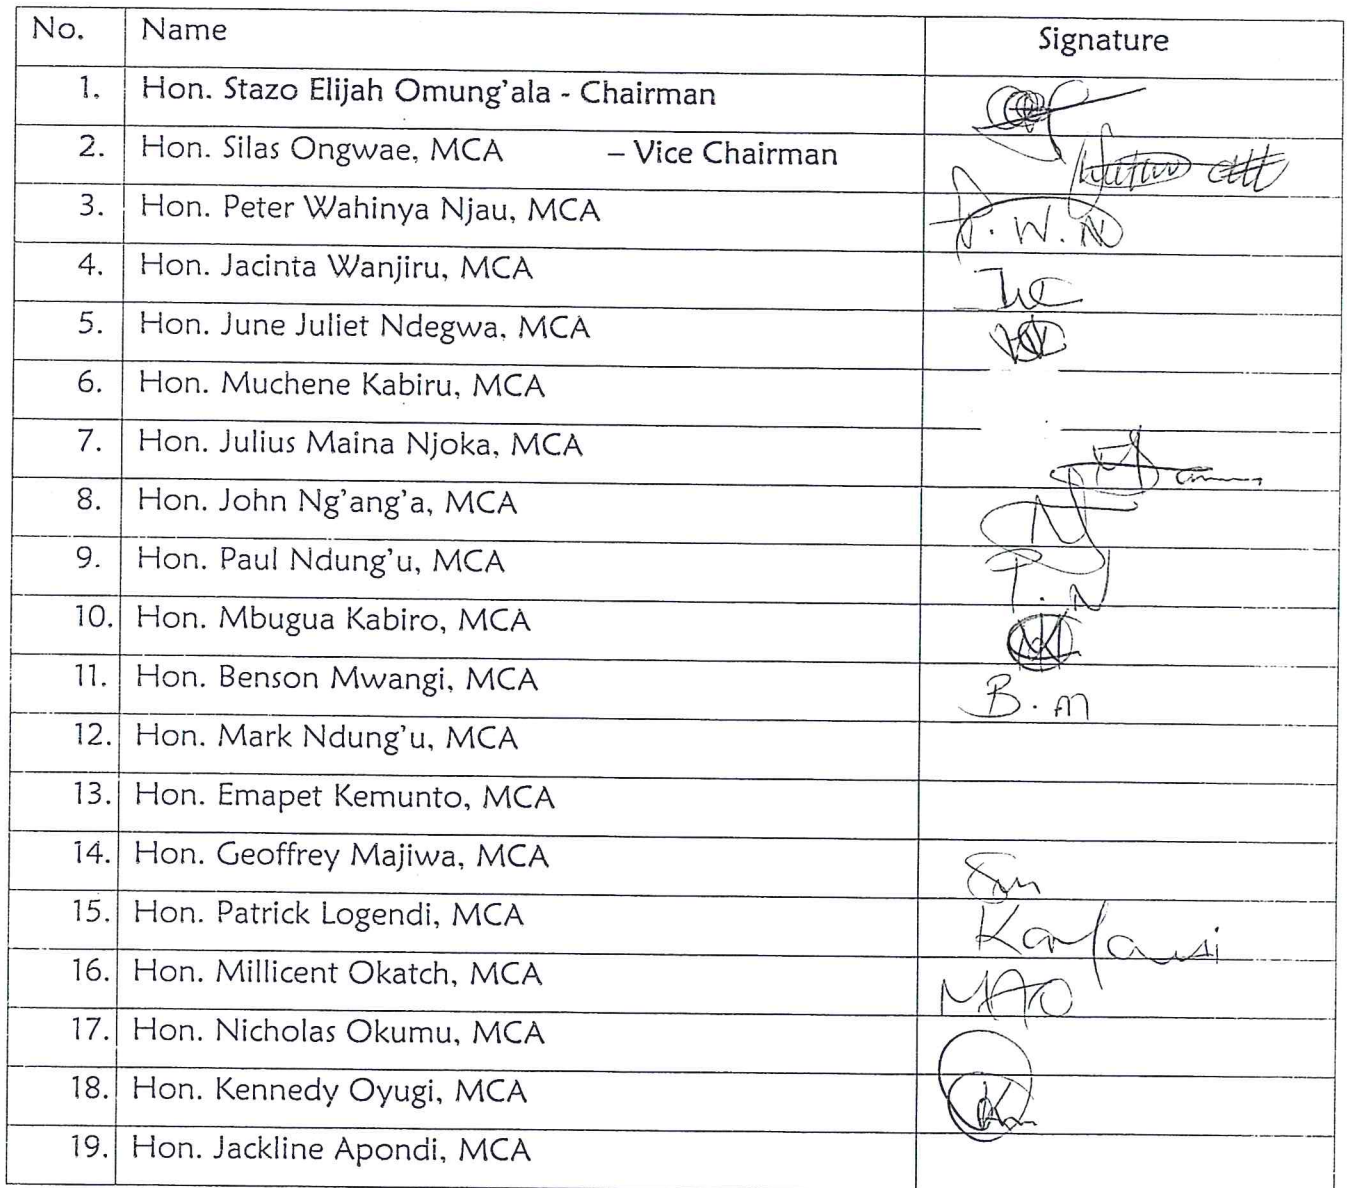 No. Name Signature
1. Hon. Stazo Elijah Omung'ala - Chairman
2. Hon. Silas Ongwae, MCA – Vice Chairman
3. Hon. Peter Wahinya Njau, MCA P.W.N
4. Hon. Jacinta Wanjiru, MCA
5. Hon. June Juliet Ndegwa, MCA
6. Hon. Muchene Kabiru, MCA
7. Hon. Julius Maina Njoka, MCA
8. Hon. John Ng'ang'a, MCA
9. Hon. Paul Ndung'u, MCA P.N
10. Hon. Mbugua Kabiro, MCA
11. Hon. Benson Mwangi, MCA B.M
12. Hon. Mark Ndung'u, MCA
13. Hon. Emapet Kemunto, MCA
14. Hon. Geoffrey Majiwa, MCA
15. Hon. Patrick Logendi, MCA
16. Hon. Millicent Okatch, MCA MAO
17. Hon. Nicholas Okumu, MCA
18. Hon. Kennedy Oyugi, MCA
19. Hon. Jackline Apondi, MCA